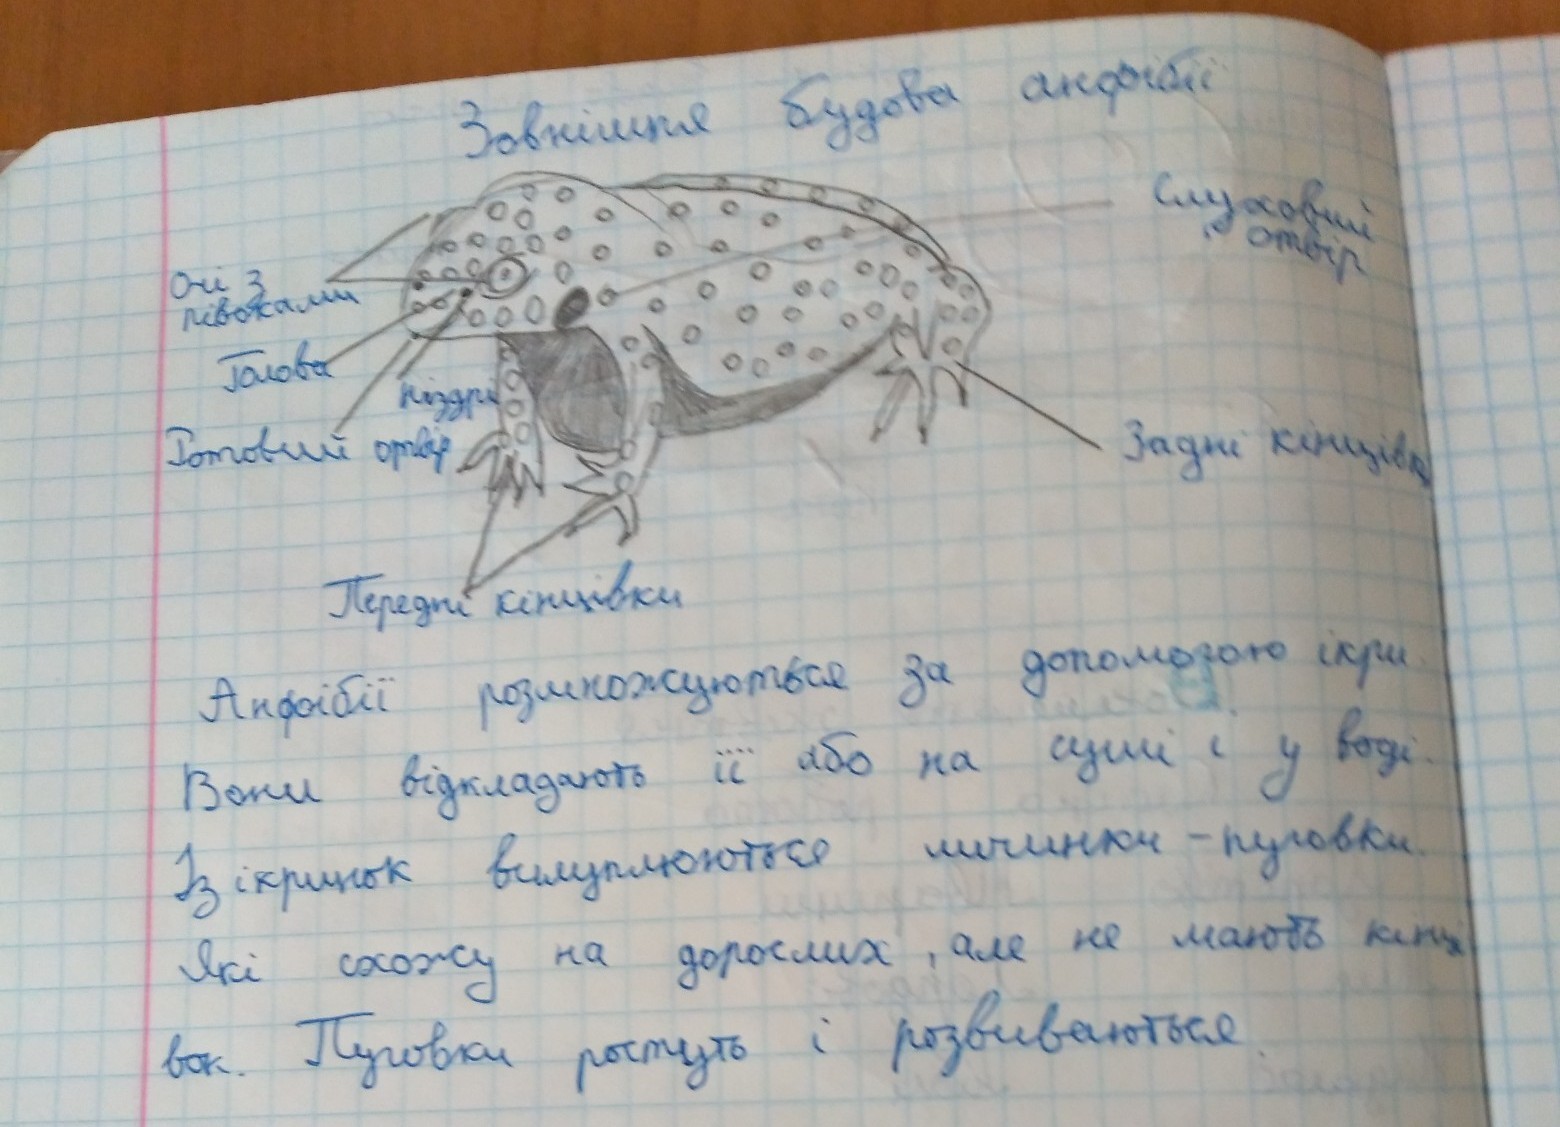 Зовнішня будова анфібії
Слуховий
отвір
Очі з
півоками
Голова
ніздрі
Ротовий отвір
Задні кінцівки
Передні кінцівки
Анфібії розмножуються за допомогою ікри.
Вони відкладають її або на суші і у воді.
Із ікринок вилуплюються личинки - пуговки.
Які схожу на дорослих, але не мають кінці
вок. Пуговки ростуть і розвиваються.